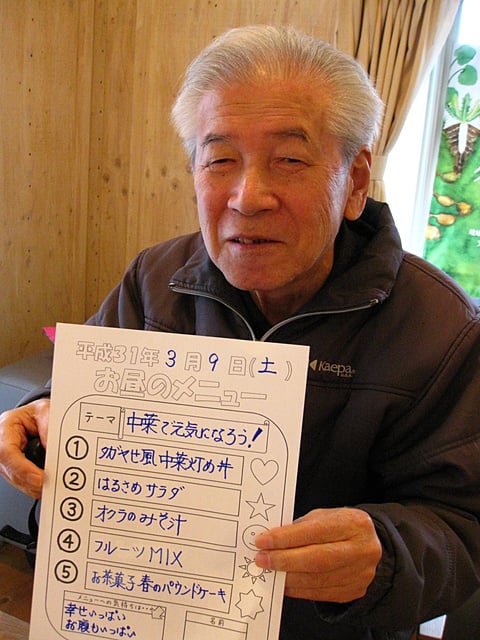 平成31年 3月 9日(土)
お昼のメニュー
テーマ 中菜で元気になろう!
①
② はるさめサラダ
③ オクラのみそ汁
④ フルーツMIX
⑤ お茶菓子 春のパウンドケーキ
メニューへの気持ちは…
幸せいっぱい
お腹もいっぱい
名前
Kaepa